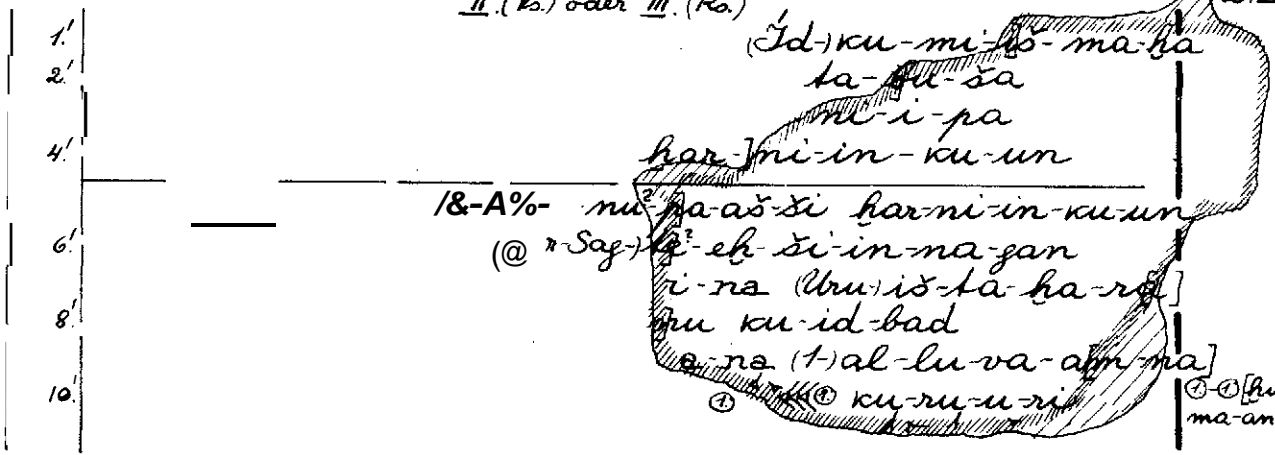 II. (Vs.) oder III. (Rs.)
1.' (Íd-)ku-mi-iš-ma-ḫa
2.' ta-ḫu-ša
ni-i-pa
4.' ḫar-]ni-in-ku-un
/&-A%- nu-pa-aš-ši ḫar-ni-in-ku-un
6.' (@ n-Sag-) eḫ-ši-in-na-gan
ri-na (Uru-)iš-ta-ḫa-ra]
8.' ru ku-id-bad
a-na (1-)al-lu-va-a[m-na]
10.' ① ① ku-ru-u-ri ①-①[ḫu
ma-an